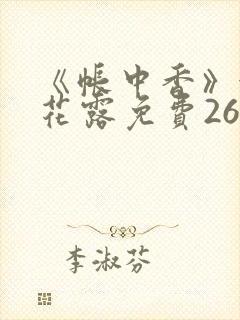 《帐中香》
花露免費26
李淑芬